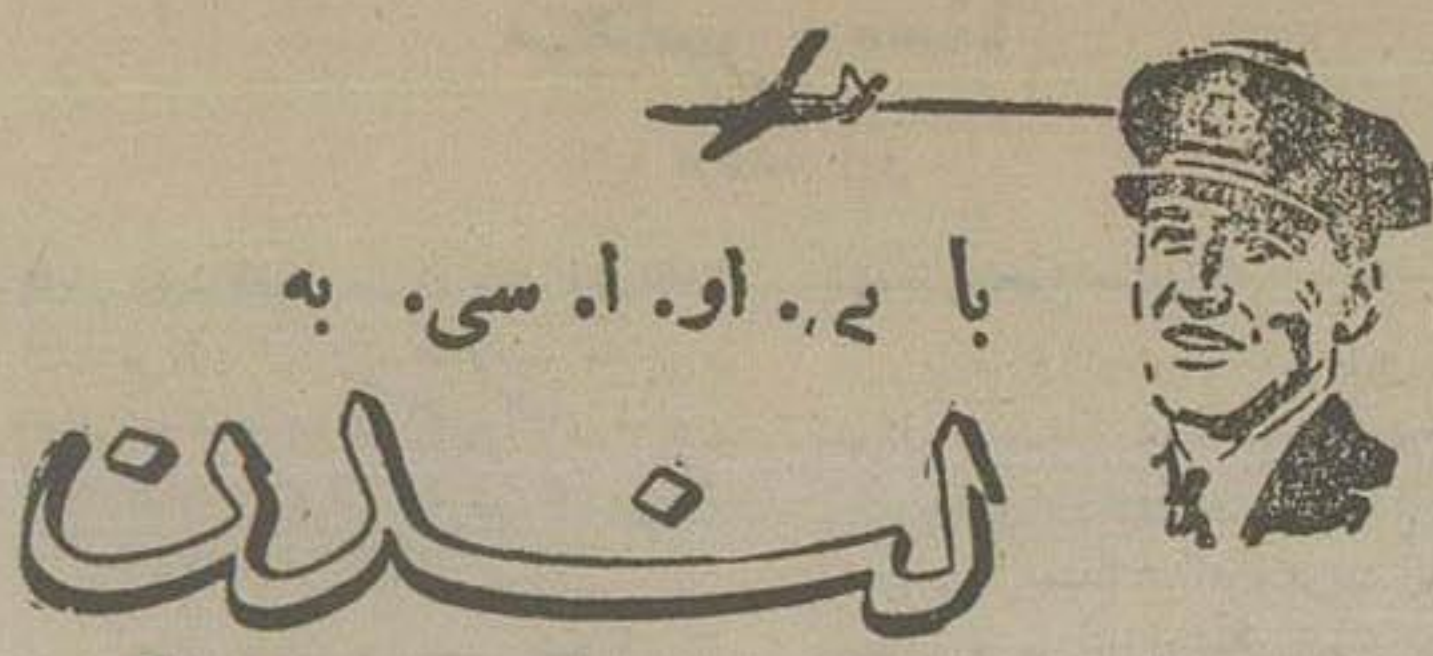 با بی. او. ا. سی. به
لندن